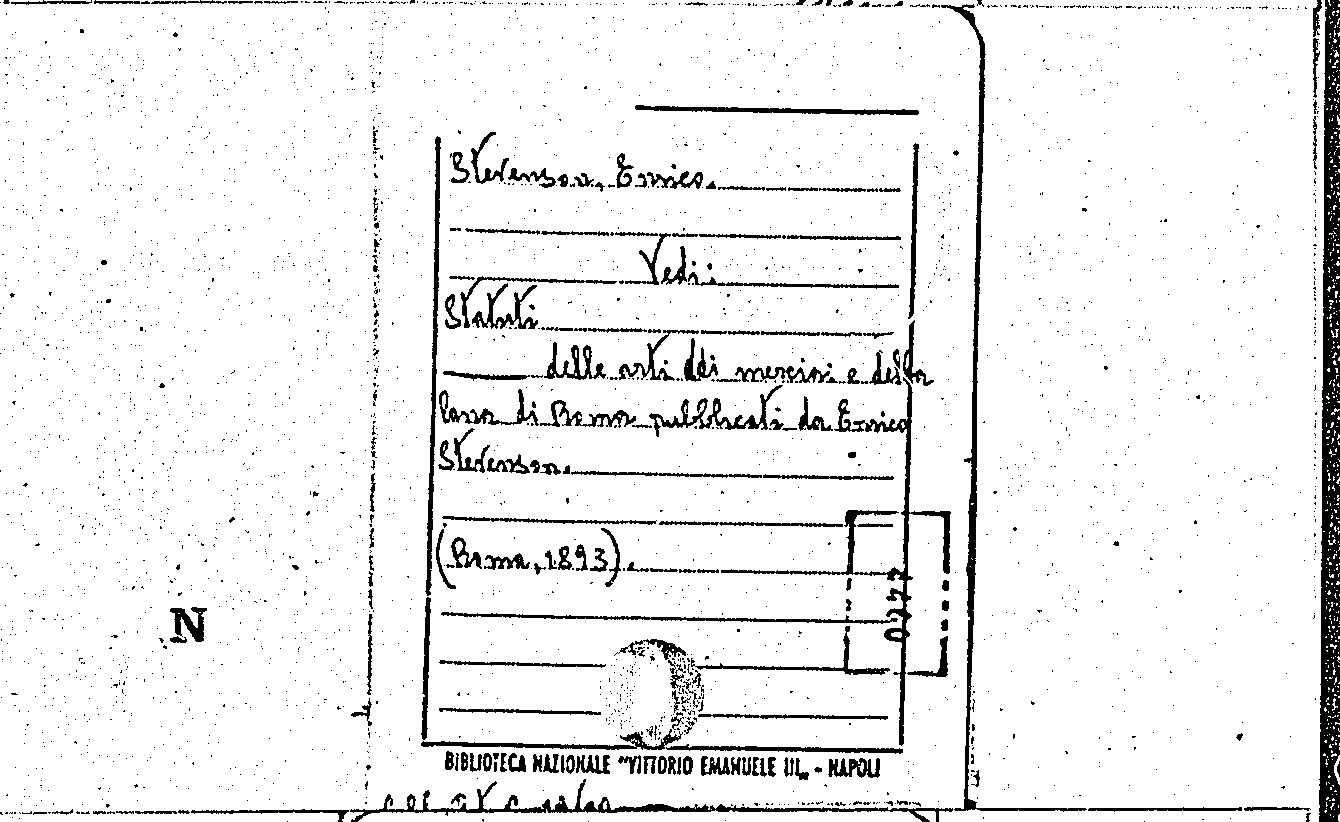 Stevenson, Enrico.
Vedi:
Statuti
delle arti ddi merciai e della
lana di Roma pubblicati da Enrico
Stevenson.
(Roma, 1893).
0777
N
BIBLIOTECA NAZIONALE "VITTORIO EMANUELE III„ - NAPOLI